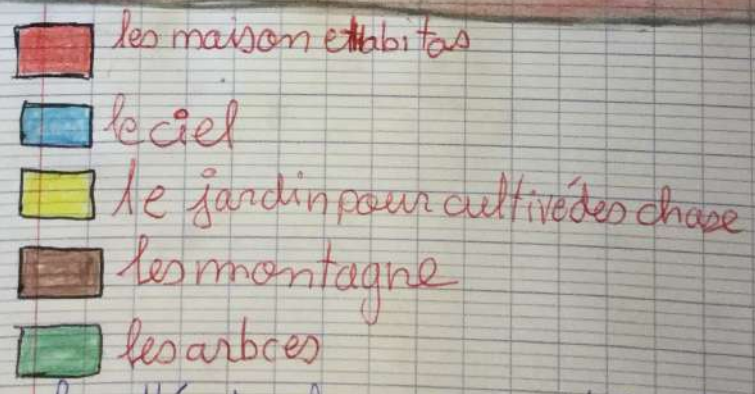 les maison et habitas
le ciel
le jardin pour cultivé des chose
les montagne
les arbres